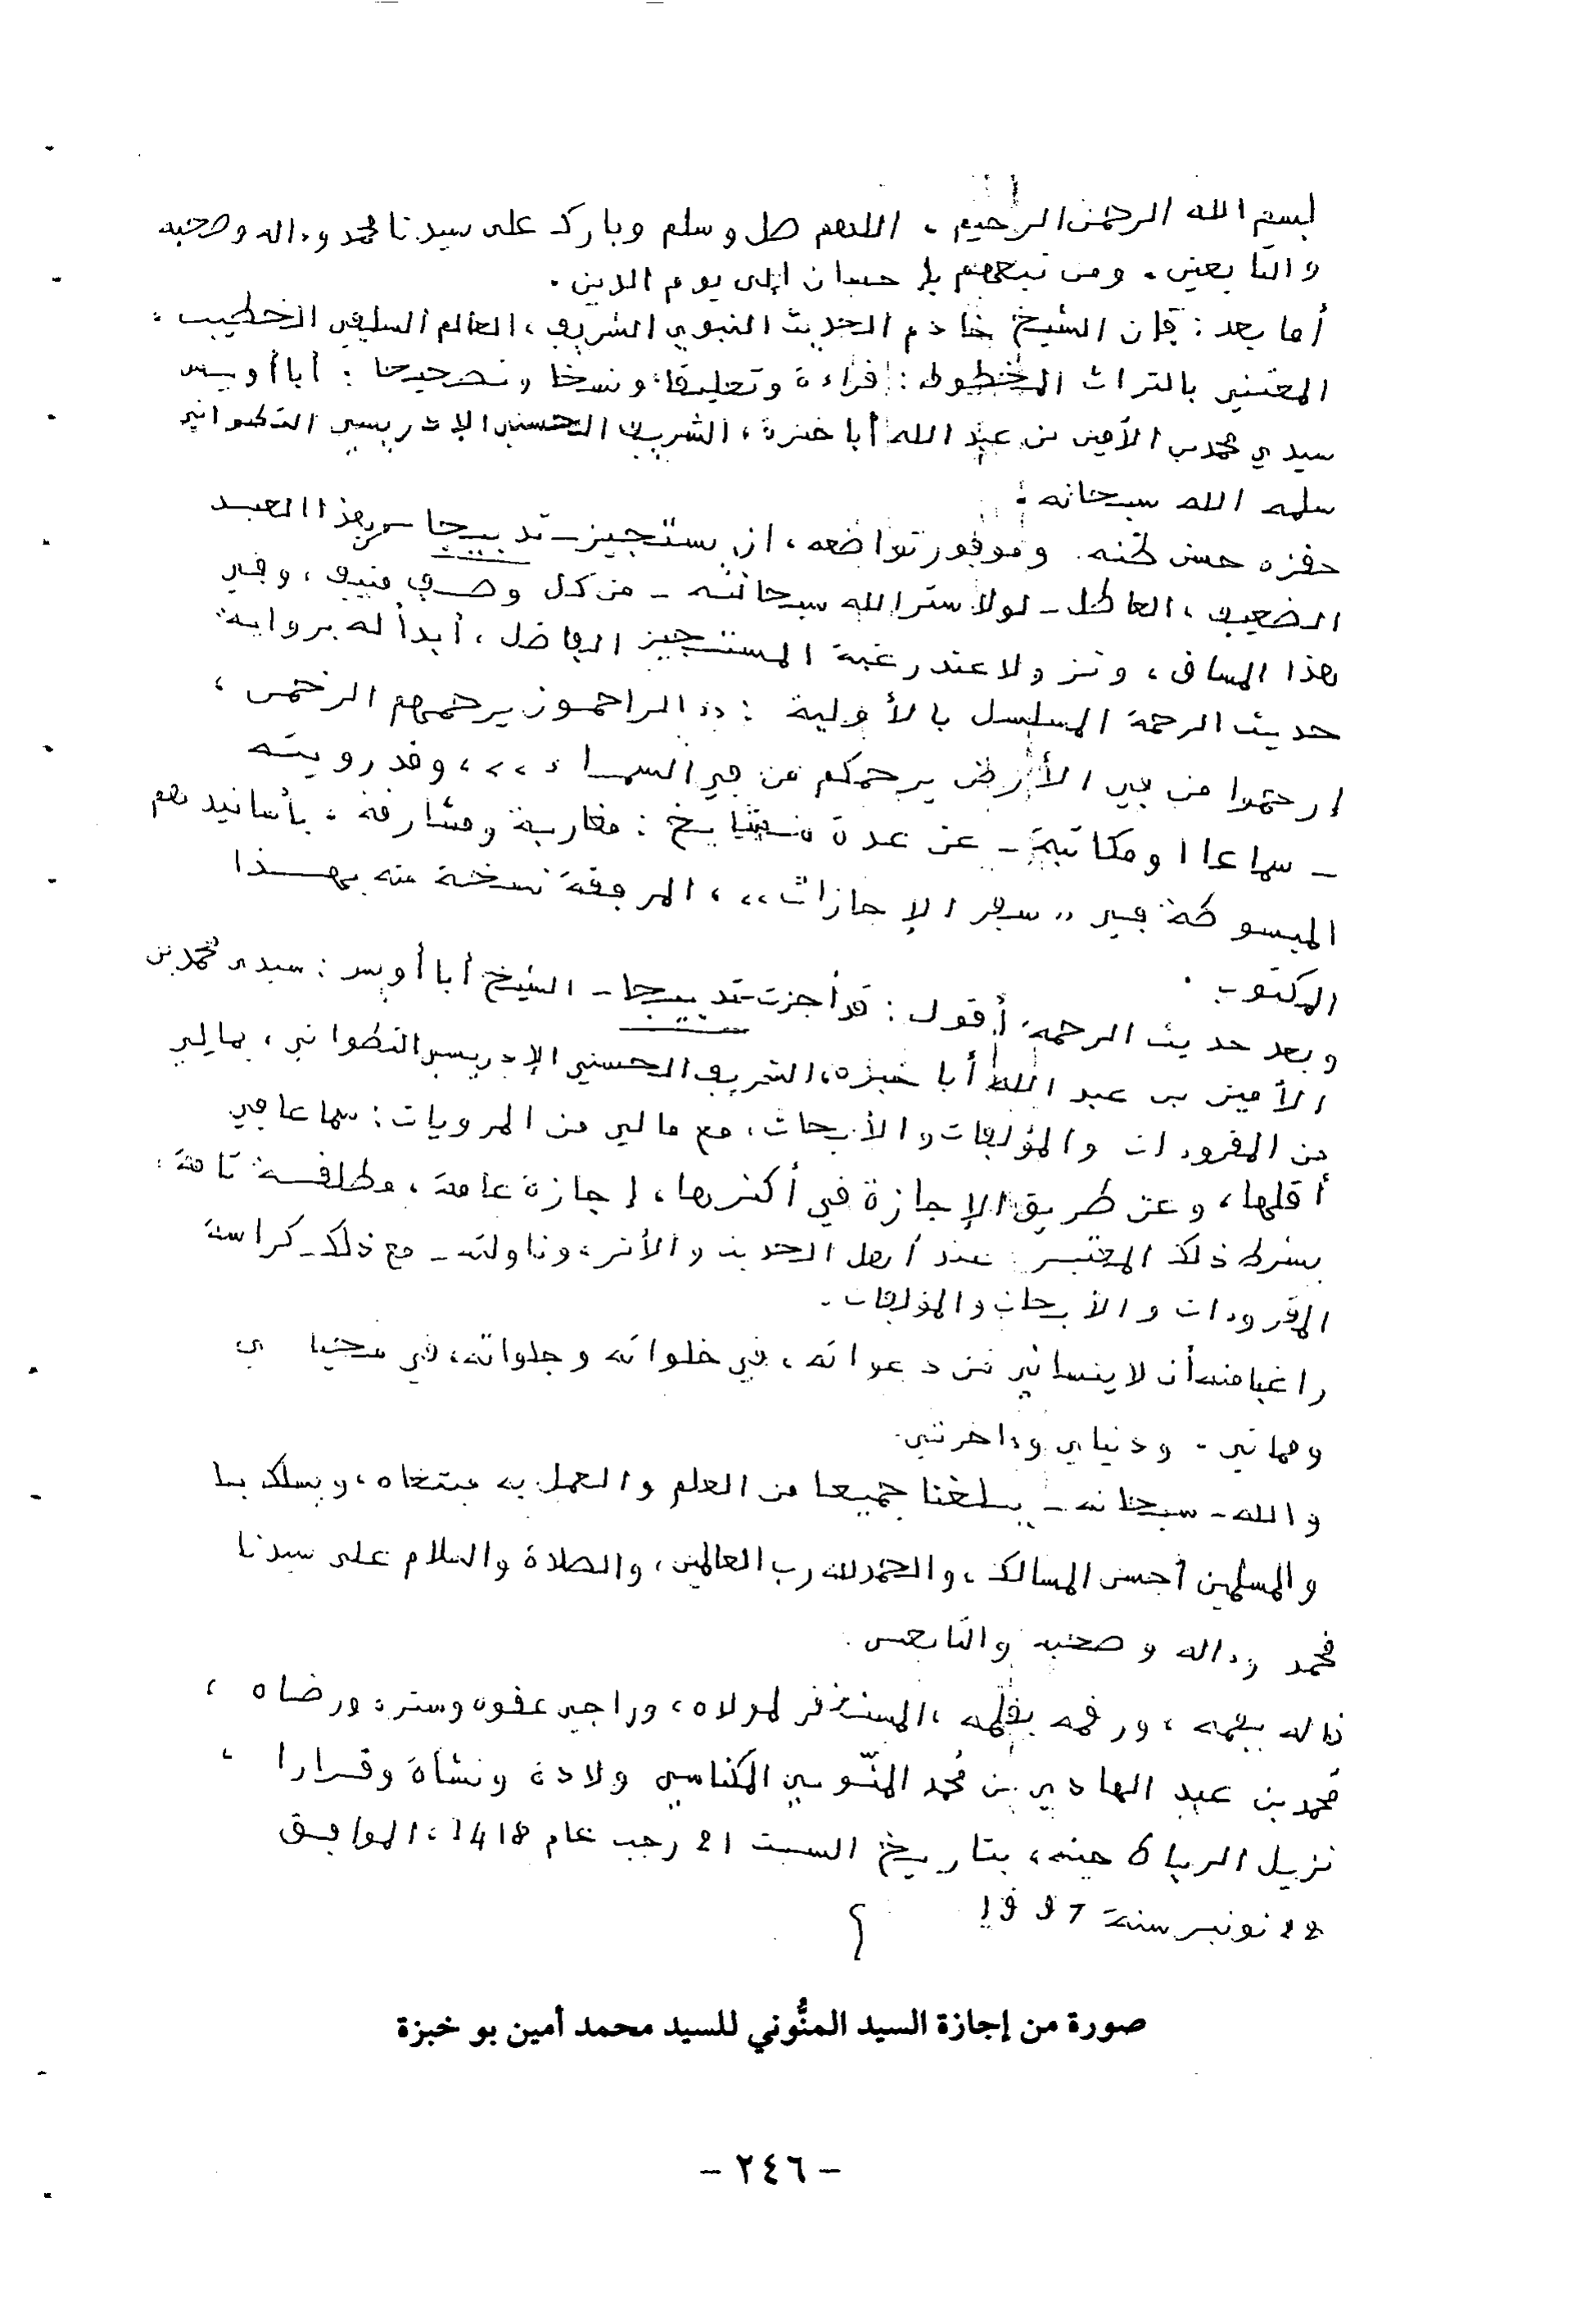 بسم الله الرحمن الرحيم، اللهم صل وسلم وبارك على سيدنا محمد وءاله وصحبه
والتابعين، ومن تبعهم بإحسان إلى يوم الدين.
أما بعد: فإن الشيخ خادم الحديث النبوي الشريف، العالم السلفي الخطيب،
المعتني بالتراث المخطوط: قراءة وتعليقا، ونسخا وتصحيحا: أبا أويس
سيدي محمد بن الأمين بن عبد الله أبا خبزة، الشريف الحسني الإدريسي التطواني
سلمه الله سبحانه:
حفزه حسن ظنه. وموفور تواضعه، أن يستجيز - تدبيجا - من هذا العبد
الضعيف، العاطل - لولا ستر الله سبحانه - من كل وصف منيف، وفي
هذا المساق، ونزولا عند رغبة المستجيز الفاضل، أبدأ له برواية
حديث الرحمة المسلسل بالأولية: ,,الراحمون يرحمهم الرحمن،
إرحموا من في الأرض يرحمكم من في السماء،،، وقد رويته
- سماعا أو مكاتبة - عن عدة مشايخ: مغاربة ومشارقة، بأسانيدهم
المبسوطة في ,,سفر الإجازات،،، المرفقة نسخة منه بهذا
المكتوب.
وبعد حديث الرحمة، أقول: قد أجزت - تدبيجا - الشيخ أبا أويس: سيدي محمد بن
الأمين بن عبد الله أبا خبزة، الشريف الحسني الإدريسي التطواني، بما لي
من المقروءات والمؤلفات والأبحاث، مع ما لي من المرويات: سماعا في
أقلها، وعن طريق الإجازة في أكثرها، إجازة عامة، مطلقة تامة،
بشرط ذلك المعتبر عند أهل الحديث والأثر، وناولته - مع ذلك - كراسة
المقروءات والأبحاث والمؤلفات.
راغبا منه أن لا ينساني من دعواته، في خلواته وجلواته، في محياي
ومماتي، ودنياي وءاخرتي.
والله - سبحانه - يبلغنا جميعا من العلم والعمل به مبتغاه، ويسلك بنا
والمسلمين أحسن المسالك، والحمد لله رب العالمين، والصلاة والسلام على سيدنا
محمد وءاله وصحبه والتابعين.
قاله بفمه، ورقمه بقلمه، المستغفر لمولاه، وراجي عفوه وستره ورضاه،
محمد بن عبد الهادي بن محمد المنّوني المكناسي ولادة ونشأة وقرارا،
نزيل الرباط حينه، بتاريخ السبت 21 رجب عام 1418، الموافق
22 نونبر سنة 1997
صورة من إجازة السيد المنُّوني للسيد محمد أمين بو خبزة
- ٢٤٦ -